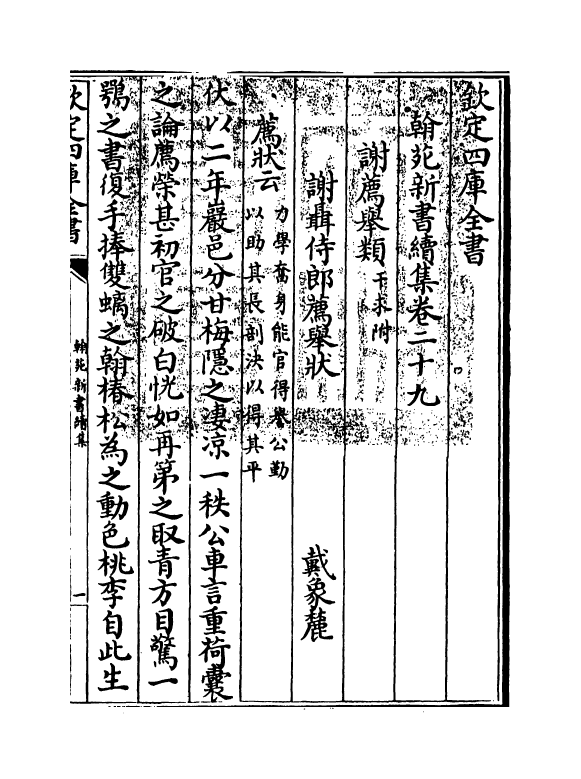 欽定四庫全書
翰苑新書續集卷二十九
謝薦舉類干求附
謝聶侍郎薦舉狀 戴象麓
薦狀云力學奮身能官得譽公勤以助其長剖決以得其平
伏以二年巖邑分甘梅隱之凄凉一秩公車言重荷囊
之論薦榮甚初官之破白恍如再第之取青方目驚一
鶚之書復手捧雙螭之翰椿松為之動色桃李自此生
欽定四庫全書
翰苑新書續集
一